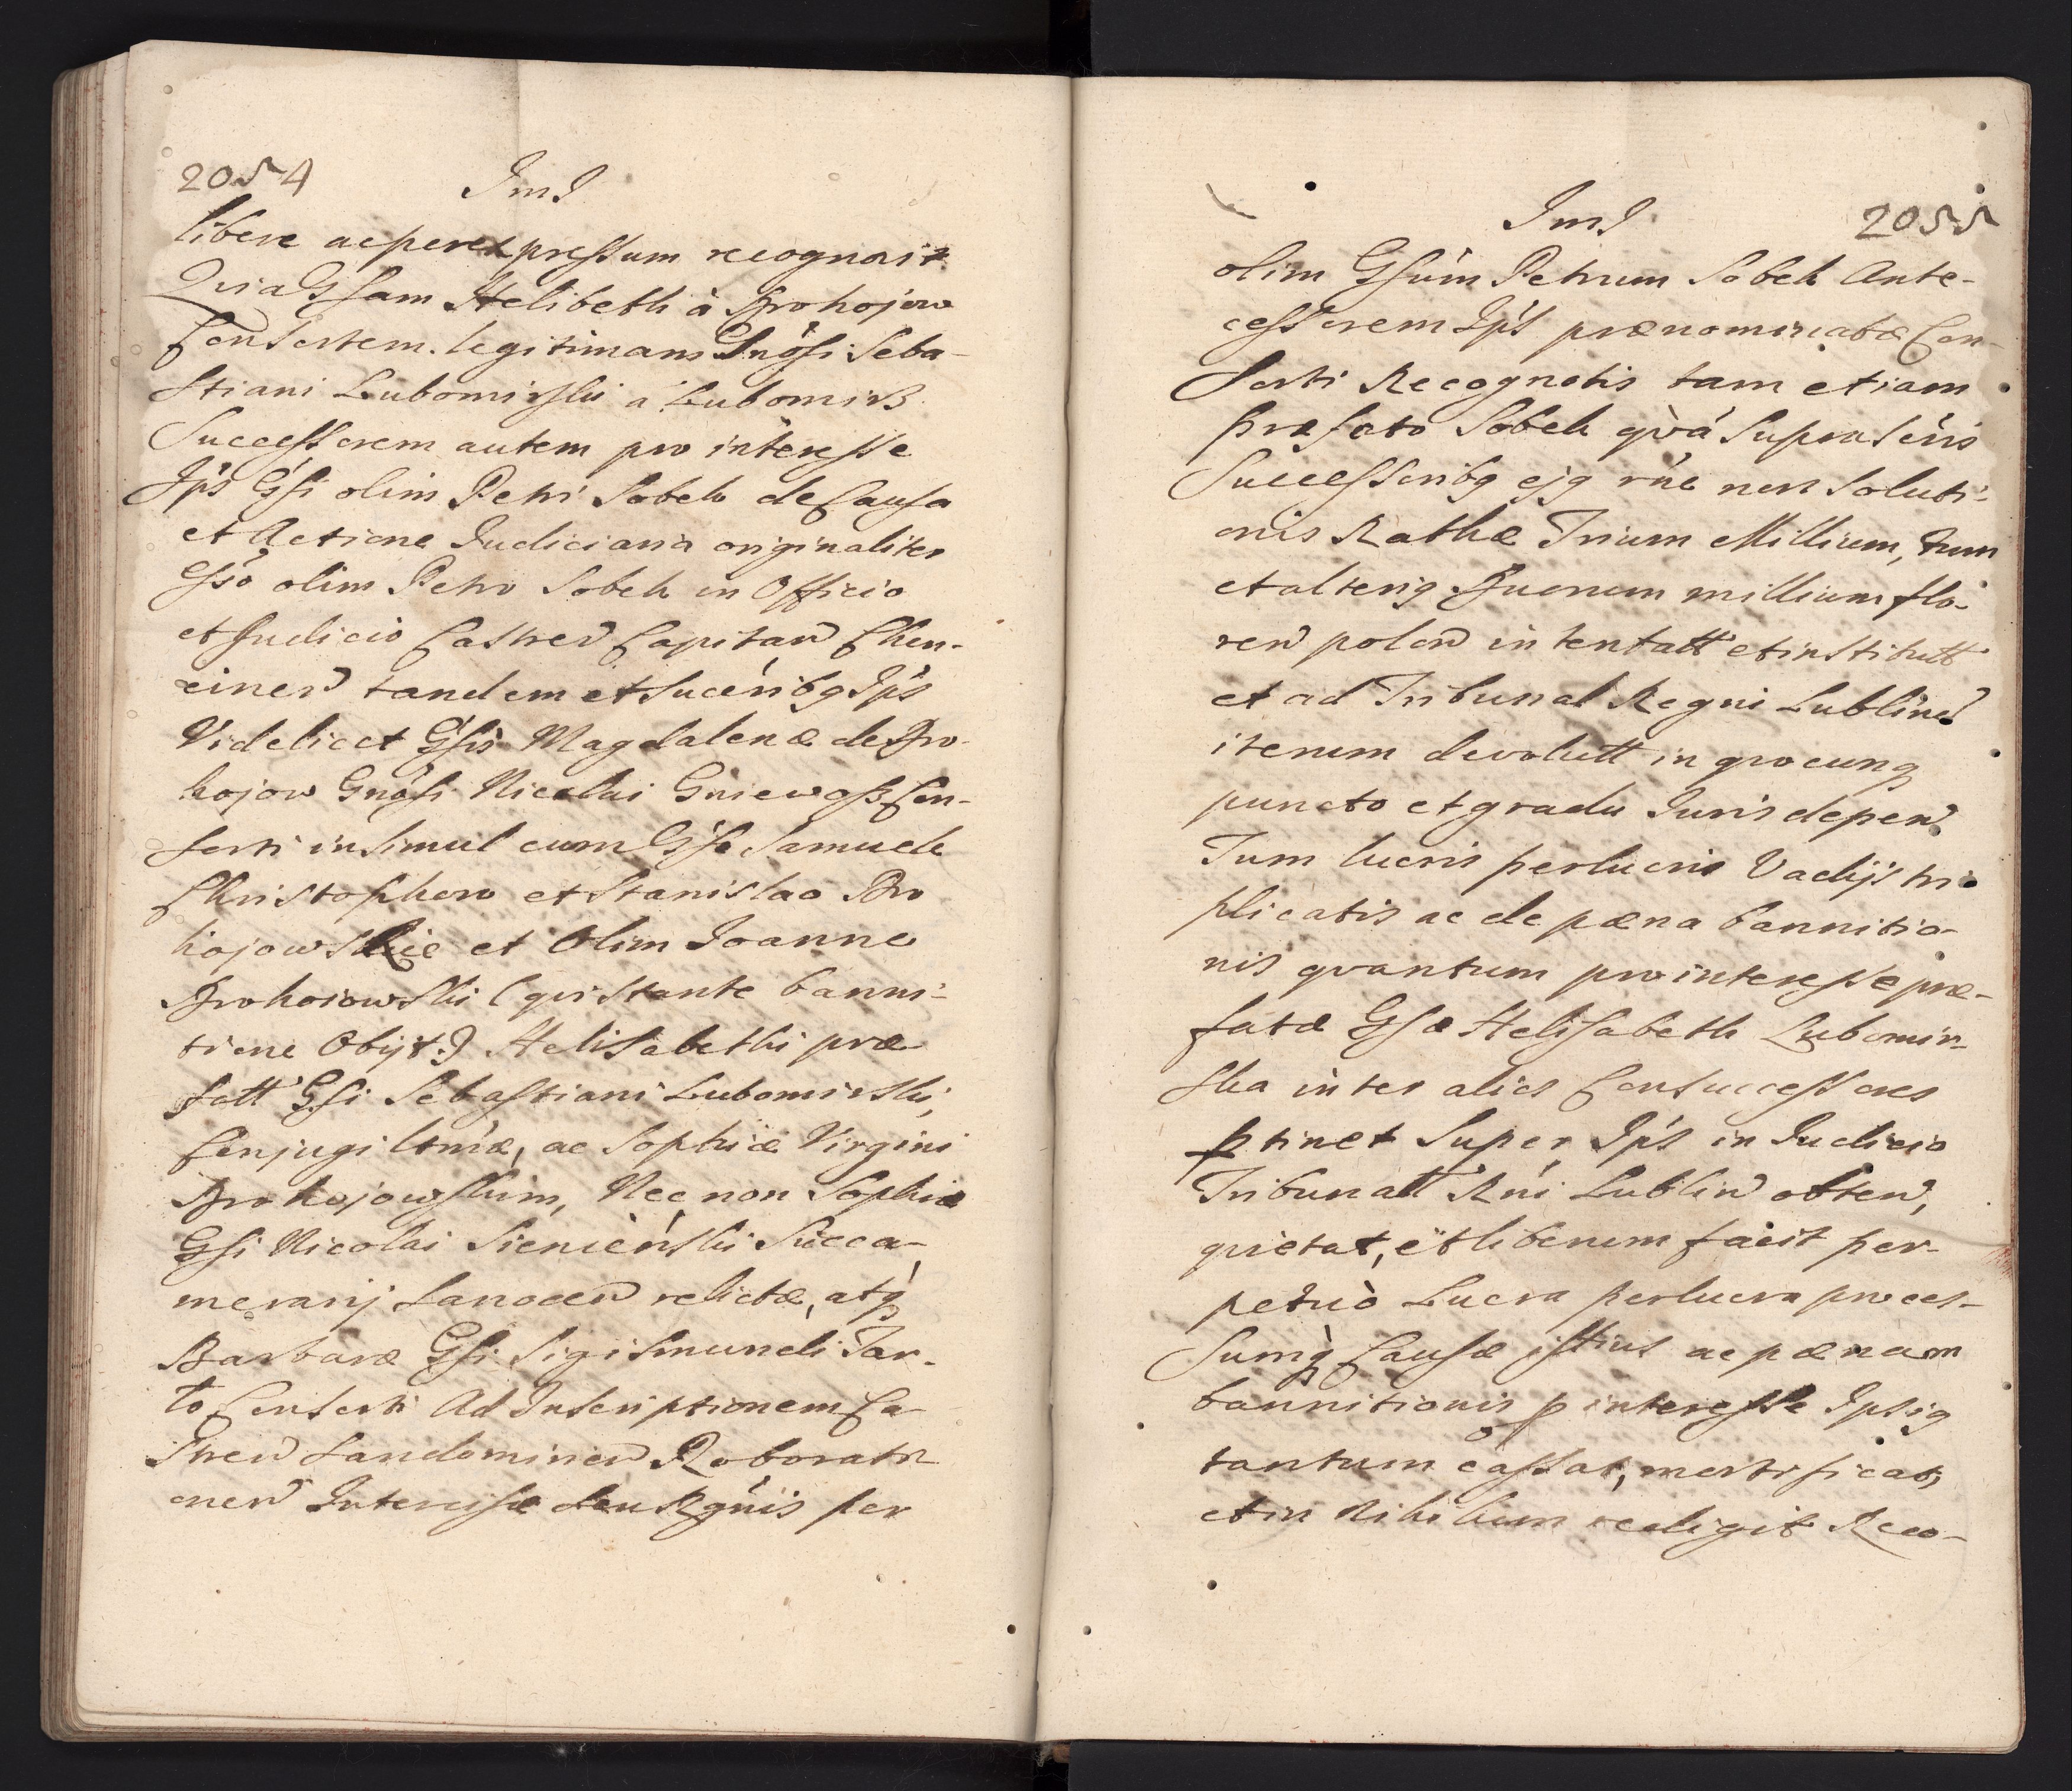 2054
ImJ
libere ac per expressum recognovit
Quia Gssam Helibeth à Brohojow
Consortem legitimam Gnosi Seba-
stiani Lubomirski a Lubomirz
Successorem autem pro interesse
Jps Gssi olim Petri Sobek de Causa
et Actione Judiciaria originaliter
Gsso olim Petro Sobek in Officio
et Judicio Castren Capitan Chen-
cinen tandem et Succribg Jps
Videlicet Gssis Magdalenæ de Bro-
hojow Gnosi Nicolai Gniewosz Con-
sorti insimul cum Gsso Samuele
Christophoro et Stanislao Bro
hojowskie et Olim Joanne
Brohoiowski (qui stante banni-
tione Obijt:) Helisabethi præ
fatt Gssi Sebastiani Lubomirski,
Conjugi ltmæ, ac Sophiæ Virgini
Brohojowskim, Nec non Sophiæ
Gssi Nicolai Sienieński Succa-
merarij Sanocen relictæ, atq
Barbaræ Gssi Sigismundi Tar-
ło Consorti Ad Inscriptionem Ca-
stren Sandomirien Roborati-
onem Interesse seu Rgnis per
ImJ
2055
olim Gssum Petrum Sobek Ante-
cessorem Jps prænominatæ Con-
sorti Recognotis tam etiam
præfato Sobek qvá Suprascris
Successoribg ejg rne non Soluti-
onis Rathæ Trium Millium, tum
et alterig Duorum millium flo-
ren polon intentatt et institutt
et ad Tribunal Regni Lublinen
iterum devolutt in qvocunq
puncto et gradu Juris depen
Tum lucris perlucris Vadijs tri-
plicatis ac de pæna bannitio-
nis qvantum pro interesse præ-
fatæ Gssæ Helisabeth Lubomir-
ska inter alios Consuccessores
ptinet Super Jps in Judicio
Tribunall Rni Lublin obten,
qvietat, et liberum facit per-
petuò Lucra perlucra proces-
sumq Causæ istius ac pænam
bannitionis p interesse Ipsig
tantum cassat, mortificat,
et in Nihilum redigit Reco-